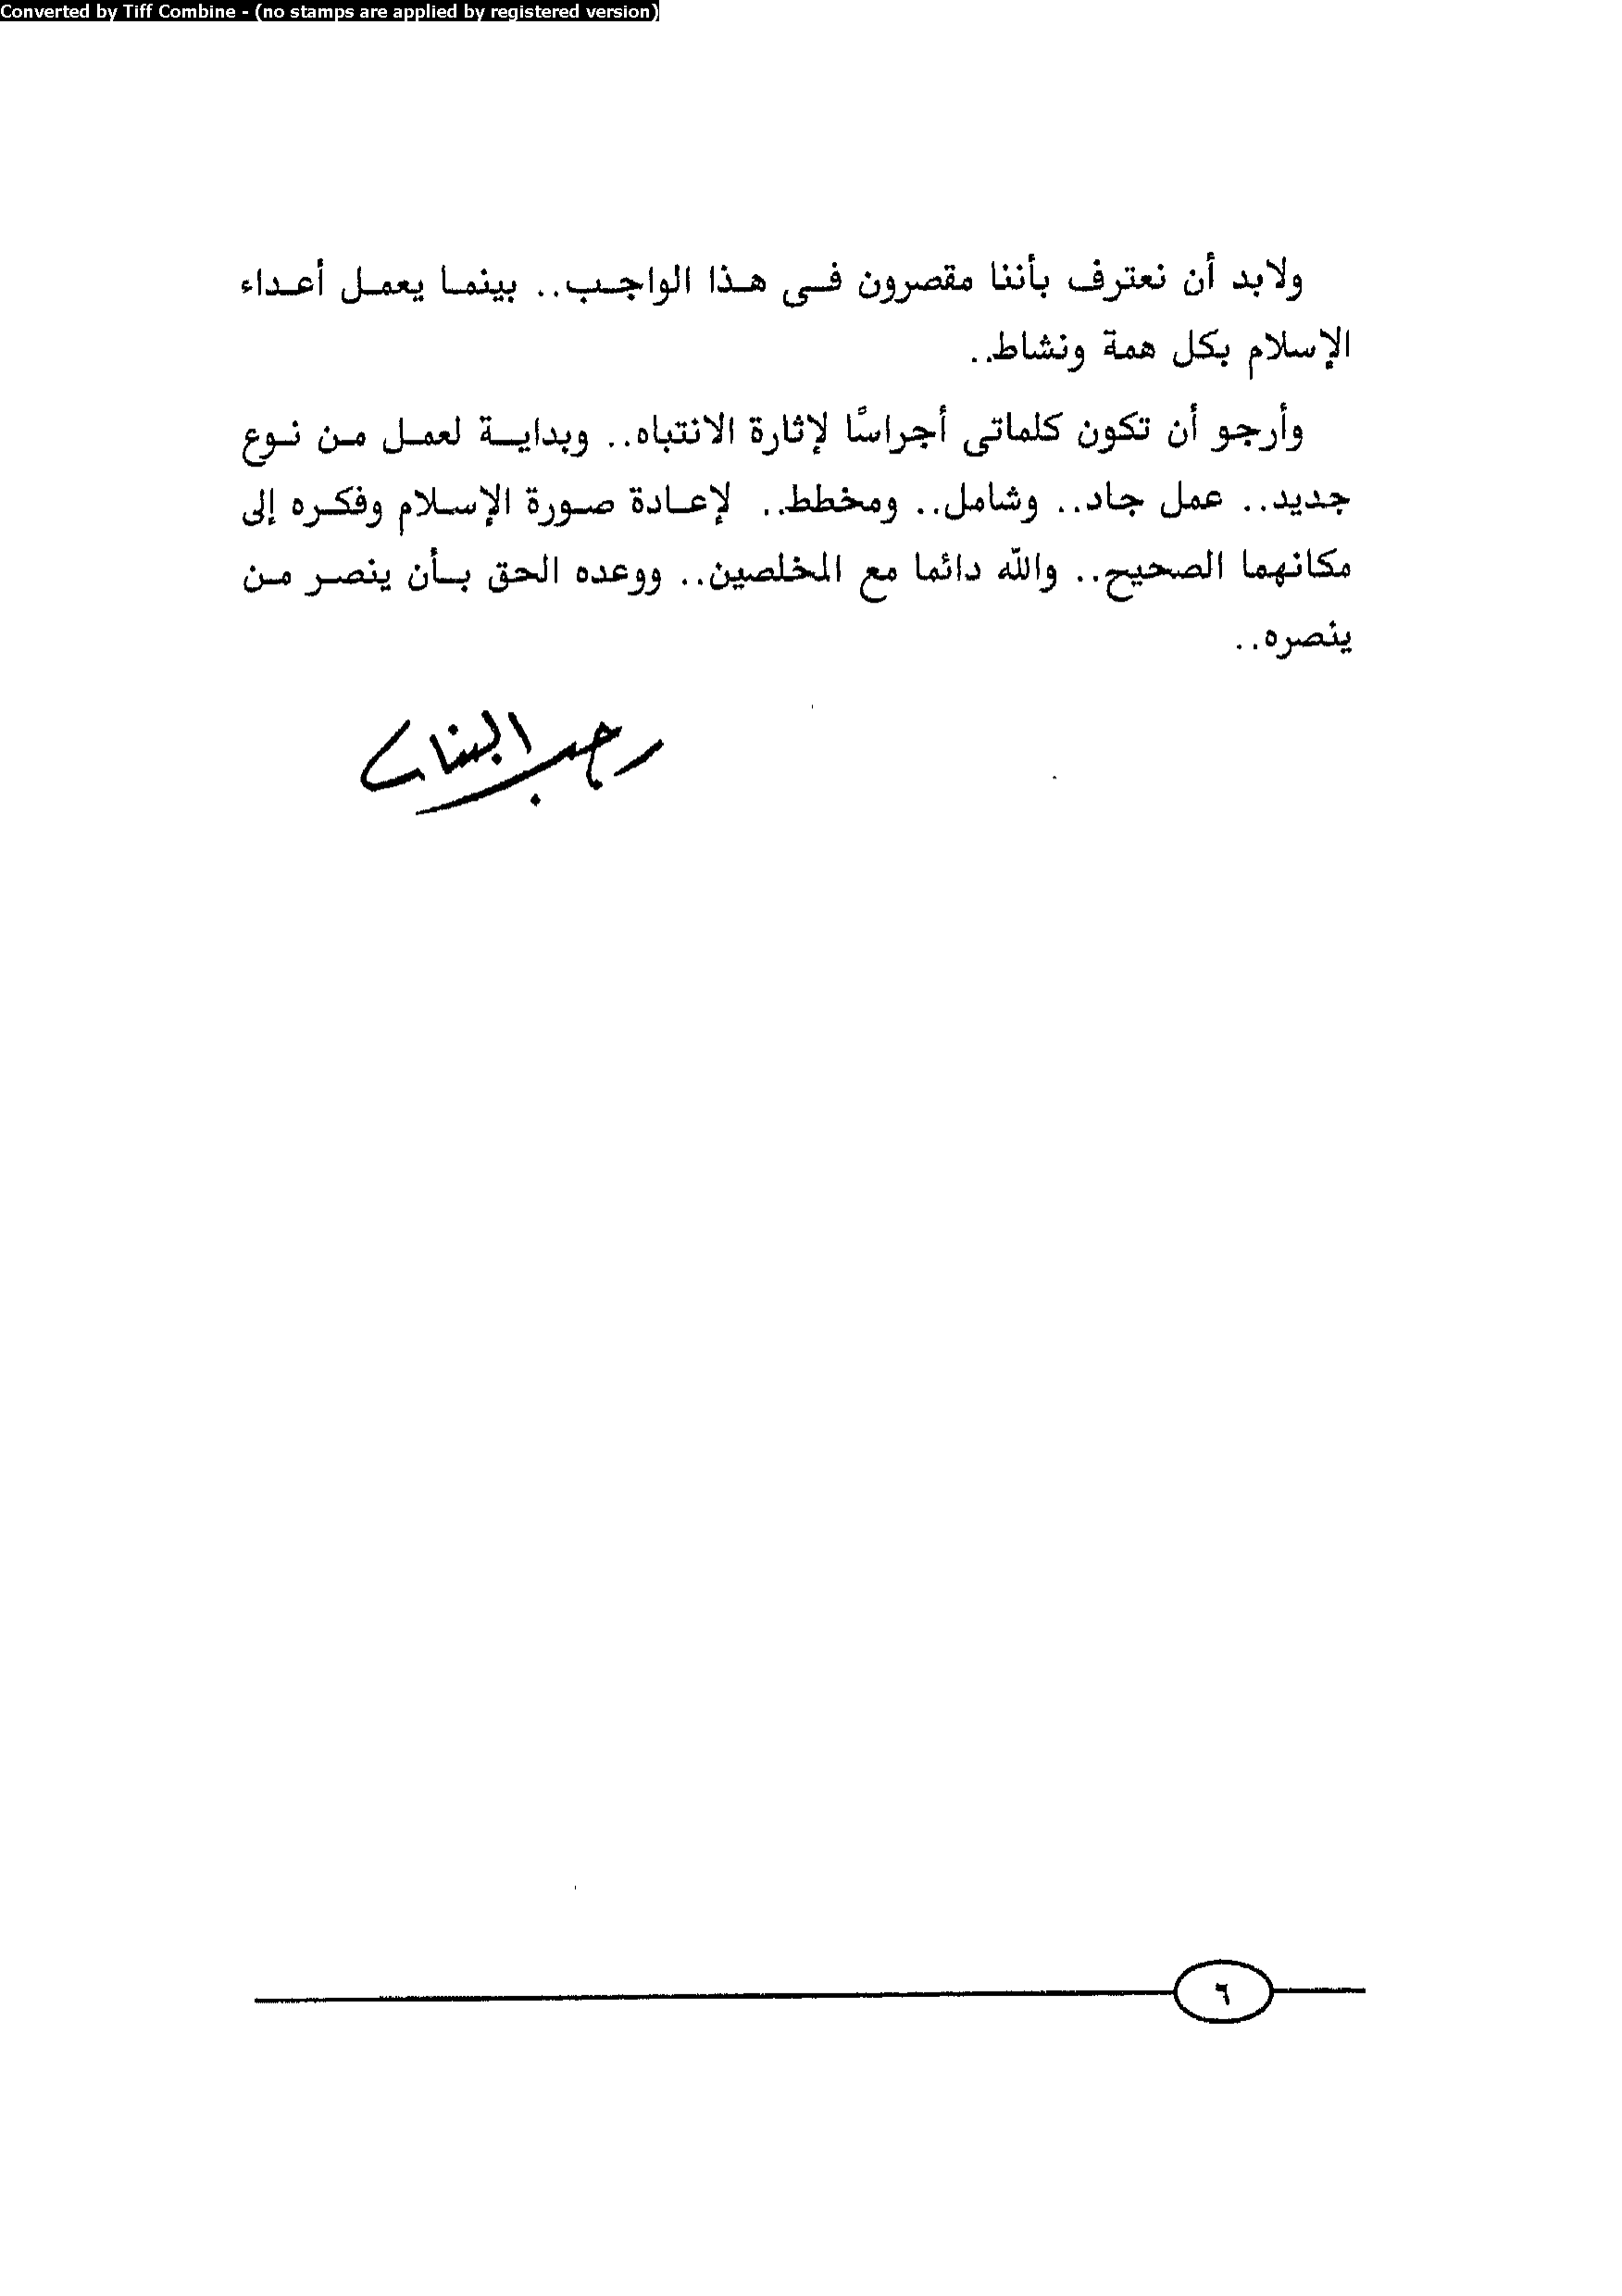 Converted by Tiff Combine - (no stamps are applied by registered version)
ولابد أن نعترف بأننا مقصرون فى هذا الواجب.. بينما يعمل أعداء
الإسلام بكل همة ونشاط..
وأرجو أن تكون كلماتى أجراسًا لإثارة الانتباه.. وبداية لعمل من نوع
جديد.. عمل جاد.. وشامل.. ومخطط.. لإعادة صورة الإسلام وفكره إلى
مكانهما الصحيح.. والله دائما مع المخلصين.. ووعده الحق بأن ينصر من
ينصره..
رجب البنا
٦